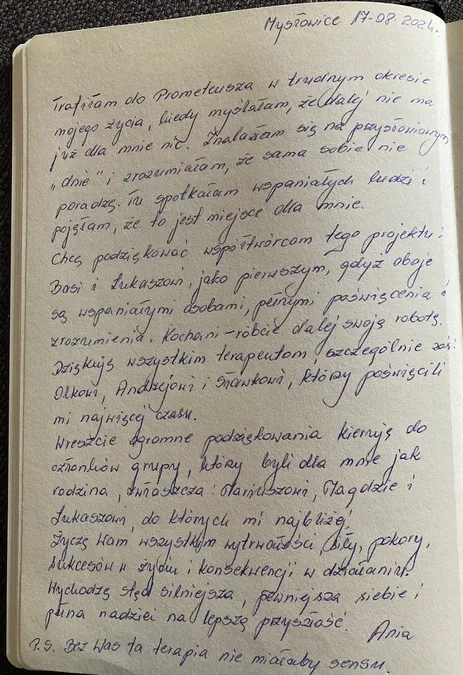 Mysłowice 17-08.2024r.
Trafiłam do Prometeusza w trudnym okresie
mojego życia, kiedy myślałam, że dalej nie ma
już dla mnie nic. Znalazłam się na przysłowiowym
„dnie" i zrozumiałam, że sama sobie nie
poradzę. Tu spotkałam wspaniałych ludzi i
pojęłam, że to jest miejsce dla mnie.
Chcę podziękować współtwórcom tego projektu:
Basi i Łukaszowi, jako pierwszym, gdyż oboje
są wspaniałymi osobami, pełnymi poświęcenia i
zrozumienia. Kochani - róbcie dalej swoją robotę.
Dziękuję wszystkim terapeutom, szczególnie zaś:
Olkowi, Andrzejowi i Sławkowi, którzy poświęcili
mi najwięcej czasu.
Wreszcie ogromne podziękowania kieruję do
członków grupy, którzy byli dla mnie jak
rodzina, zwłaszcza: Mariuszowi, Magdzie i
Łukaszowi, do których mi najbliżej!
Życzę Wam wszystkim wytrwałości, siły, pokory,
sukcesów w życiu i konsekwencji w działaniu.
Wychodzę stąd silniejsza, pewniejsza siebie i
pełna nadziei na lepszą przyszłość. Ania
P.S. Bez Was ta terapia nie miałaby sensu.